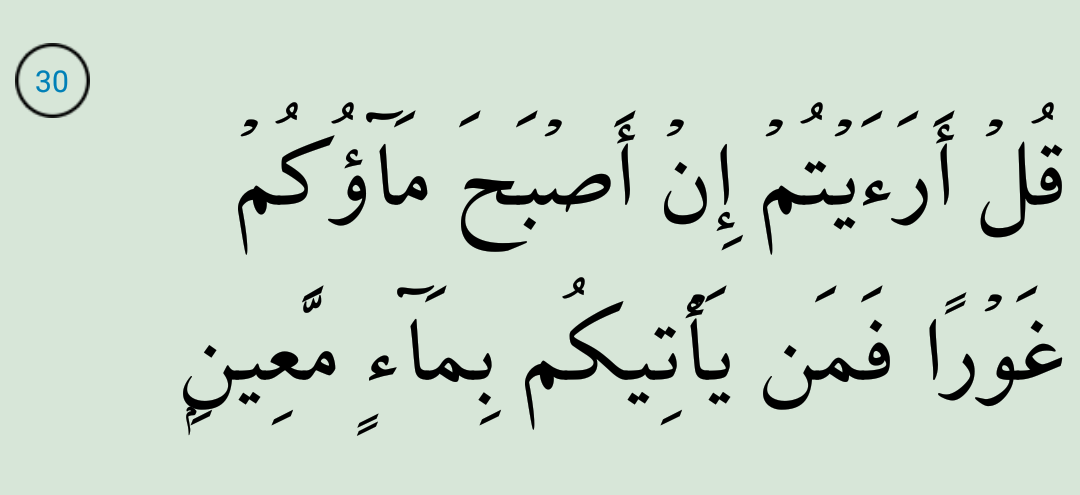 30
قُلْ أَرَءَيْتُمْ إِنْ أَصْبَحَ مَآؤُكُمْ
غَوْرًا فَمَن يَأْتِيكُم بِمَآءٍ مَّعِينِۭ